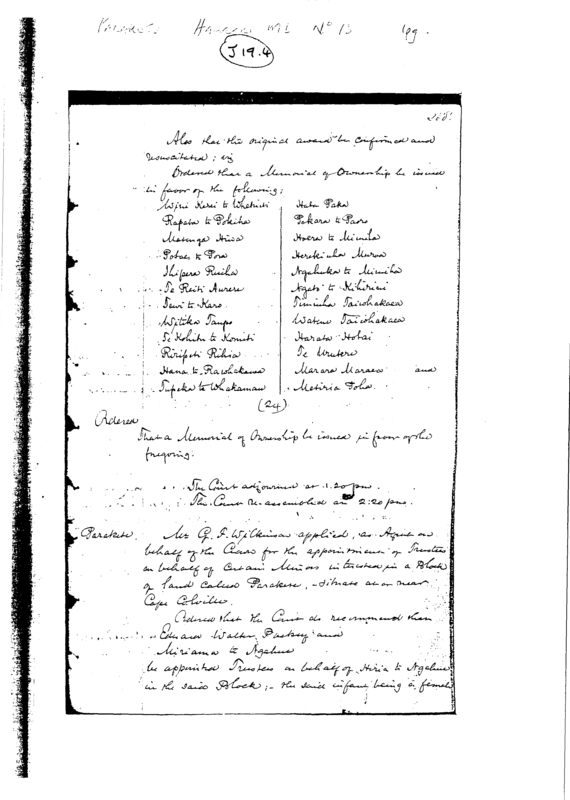 Parakete Hauraki MB No 13 pg.
J 19.4
268.
Also that the original award be confirmed and
resuscitated; viz
Ordered that a Memorial of Ownership be issued
in favor of the following:
Wiri Kerei te Whetuiti Huta Paka
Rapata te Pokiha Pakara te Paoro
Matenga Hiwa Hoera te Mimiha
Potae te Pora Herekiuha Murua
Ihipera Ruiha Ngahuka te Mimiha
Te Reiti Aurere Ngati te Kihirini
Tewi te Karo Timiuha Taiwhakaea
Witeka Taupo Watene Taiwhakaea
Te Kohiti te Komiti Harata Hotai
Riripeti Rihia Te Uruturu
Hana te Rawhakawa Marara Maraea and
Tupeka te Whakamau Metiria Toha
(24)
Ordered
That a Memorial of Ownership be issued in favor of the
foregoing.
The Court adjourned at 1.20 pm.
The Court re-assembled at 2:20 pm.
Parakete. Mr G. F. Wilkinson applied, as Agent on
behalf of the Crown for the appointment of Trustees
on behalf of Certain Minors interested in a Block
of land called Parakete, situate at or near
Cape Colville.
Ordered that the Court do recommend that
Edward Walter Puckey and
Miriama te Ngahue
be appointed Trustees on behalf of Hiria te Ngahue
in the said Block; - the said infant being a female